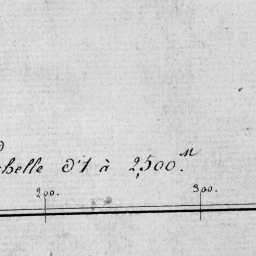 chelle d'1 à 2,500.M
200. 300.